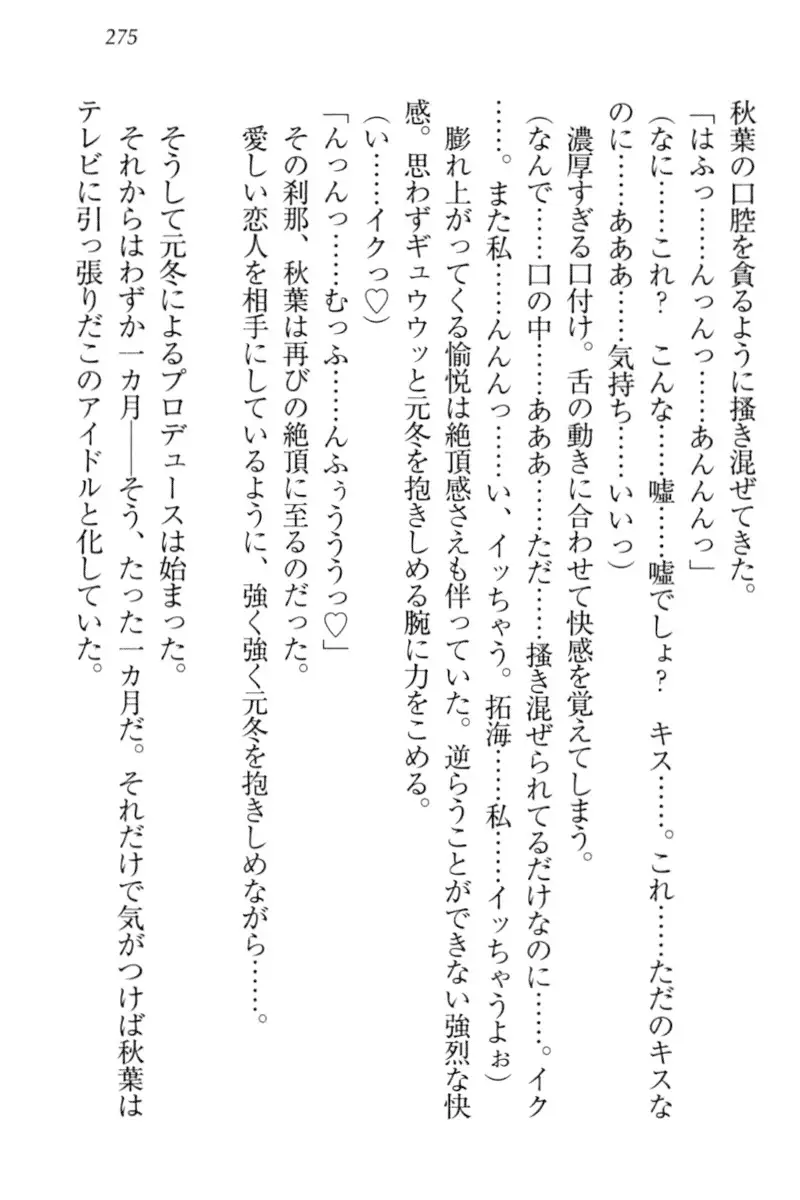 275
秋葉の口腔を貪るように掻き混ぜてきた。
「はふっ……んっんっ……あんんんっ」
（なに……これ？　こんな……嘘……嘘でしょ？　キス……。これ……ただのキスな
のに……あああ……気持ち……いいっ）
濃厚すぎる口付け。舌の動きに合わせて快感を覚えてしまう。
（なんで……口の中……あああ……ただ……掻き混ぜられてるだけなのに……。イク
……。また私……んんんっ……い、イッちゃう。拓海……私……イッちゃうよぉ）
膨れ上がってくる愉悦は絶頂感さえも伴っていた。逆らうことができない強烈な快
感。思わずギュウウッと元冬を抱きしめる腕に力をこめる。
（い……イクっ♡）
「んっんっ……むっふ……んふぅうううっ♡」
その刹那、秋葉は再びの絶頂に至るのだった。
愛しい恋人を相手にしているように、強く強く元冬を抱きしめながら……。
そうして元冬によるプロデュースは始まった。
それからはわずか一カ月――そう、たった一カ月だ。それだけで気がつけば秋葉は
テレビに引っ張りだこのアイドルと化していた。